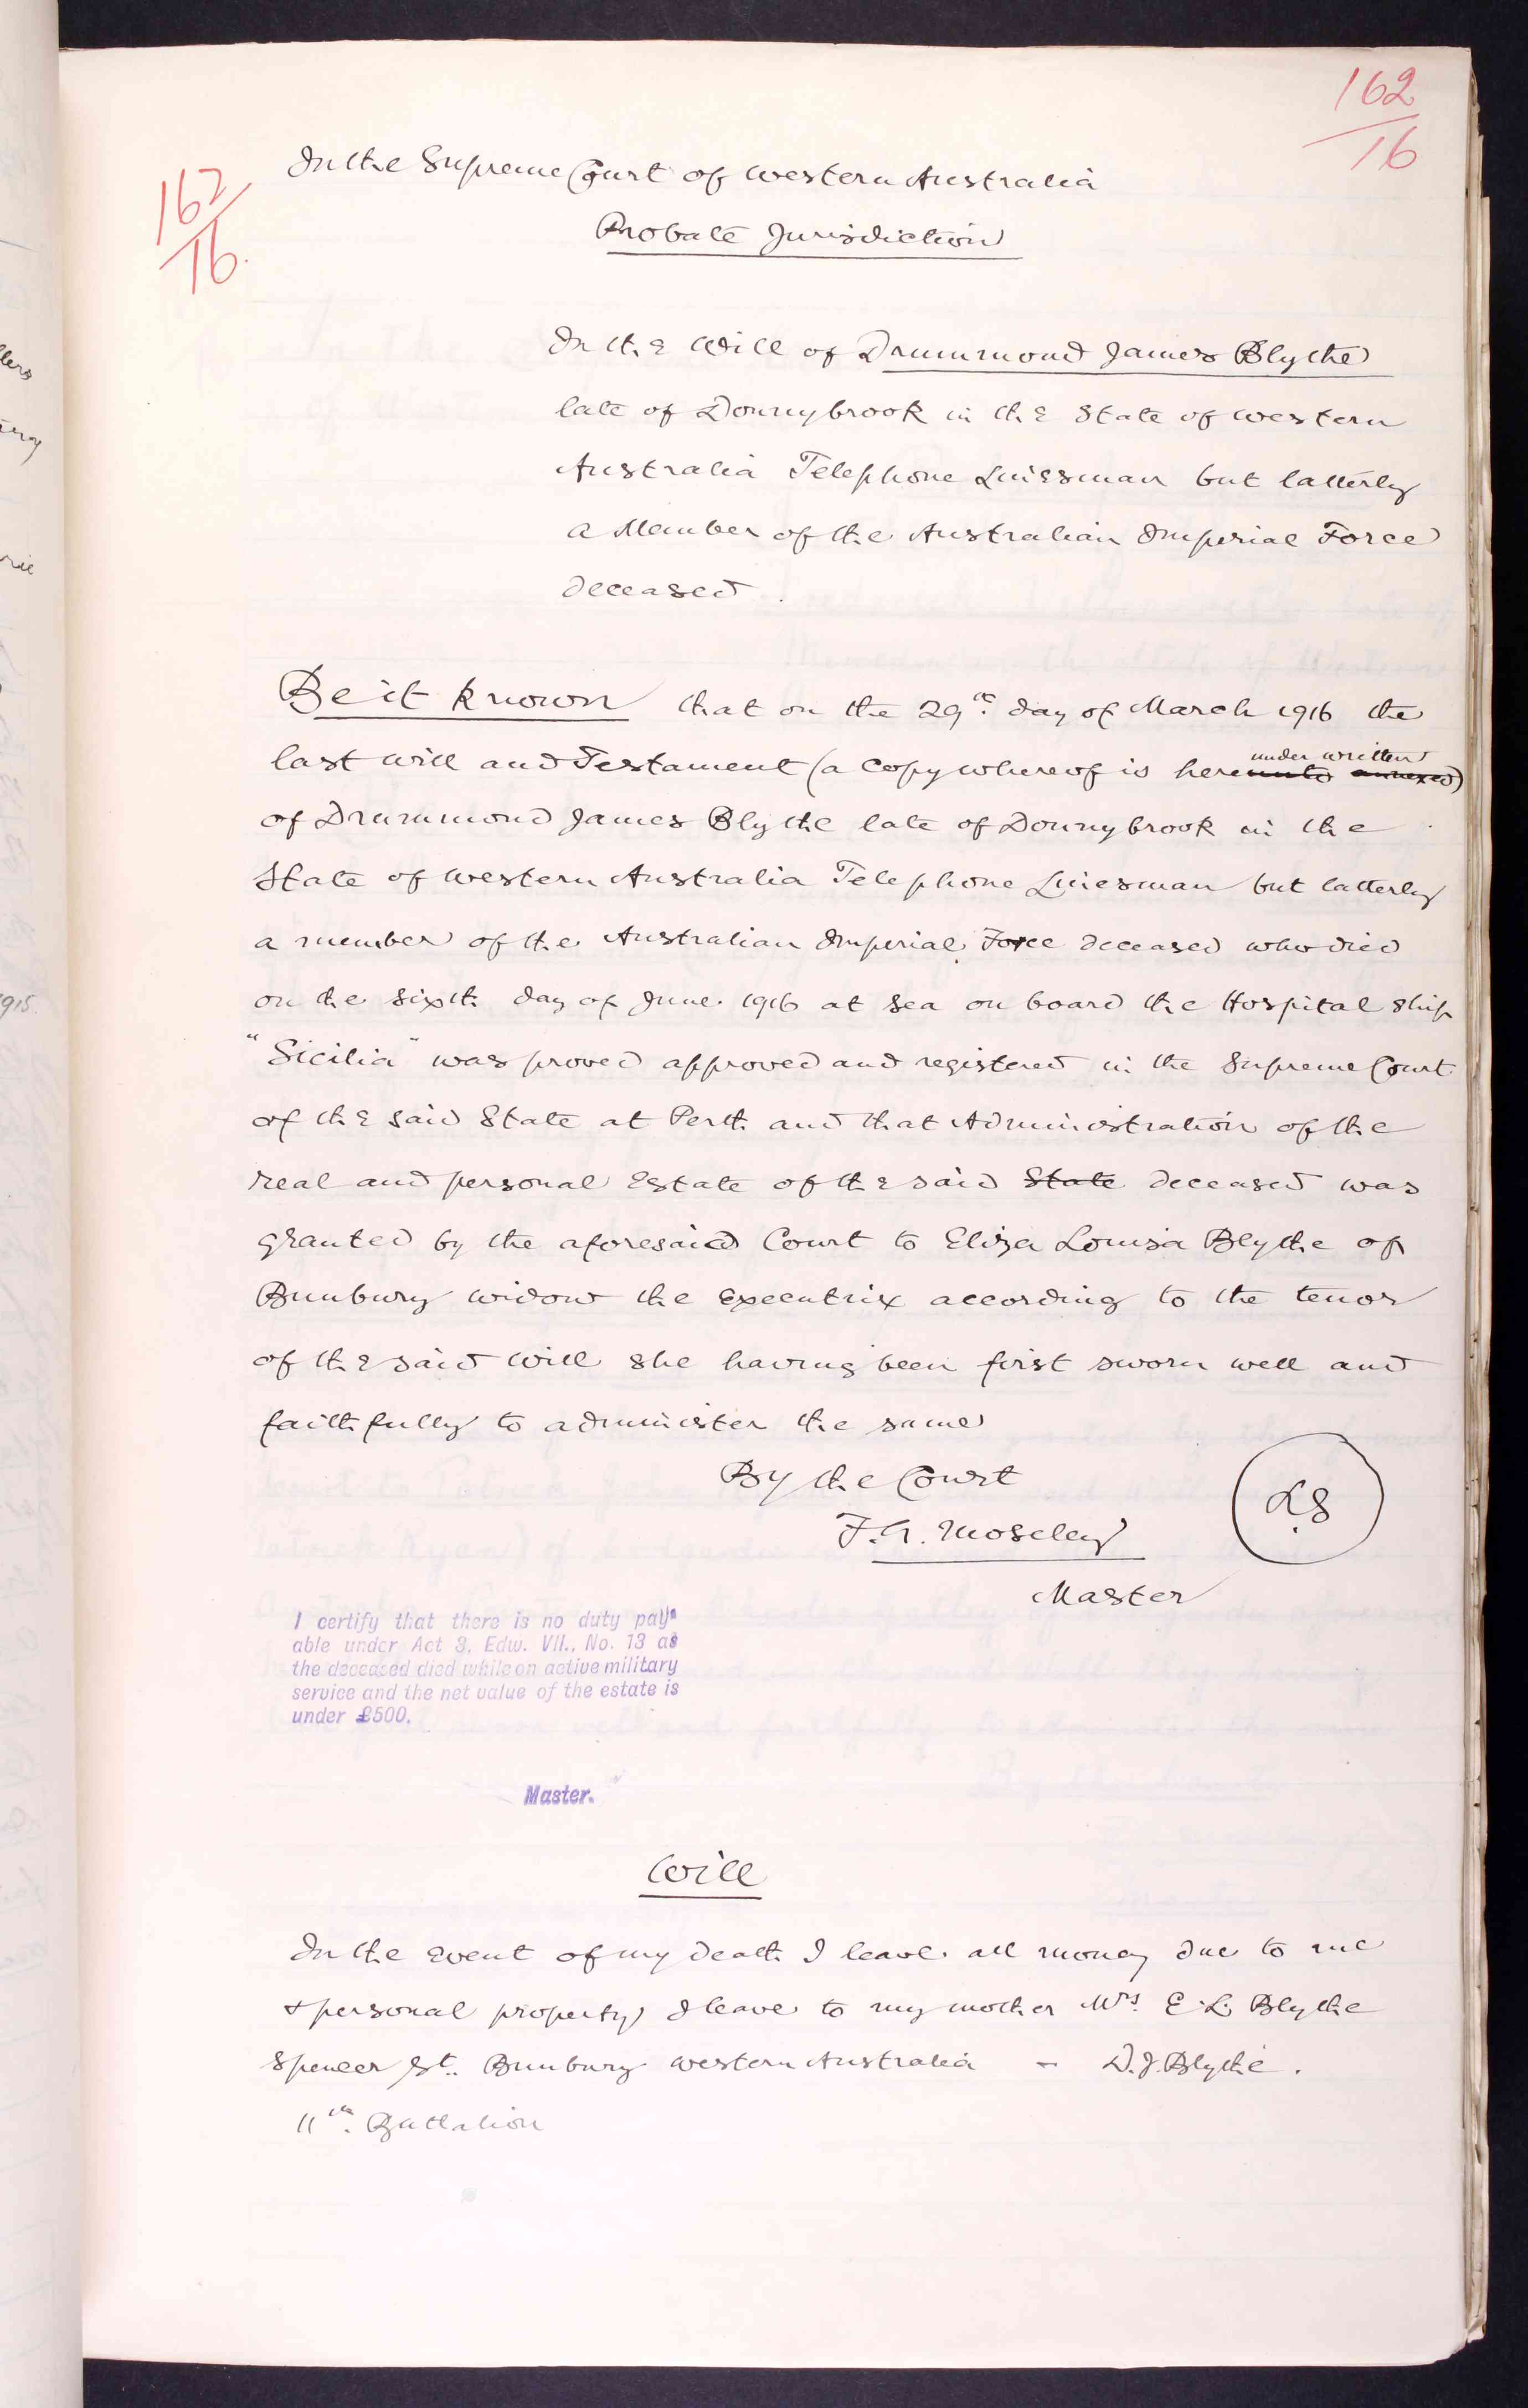 162
16
162
16.
In the Supreme Court of Western Australia
Probate Jurisdiction
In the Will of Drummond James Blythe
late of Donnybrook in the State of Western
Australia Telephone Linesman but latterly
a Member of the Australian Imperial Force
deceased.
Be it known that on the 29th day of March 1916 the
under written
last will and Testament (a copy whereof is hereunto annexed)
of Drummond James Blythe late of Donnybrook in the
State of Western Australia Telephone Linesman but latterly
a member of the Australian Imperial Force deceased who died
on the sixth day of June 1916 at sea on board the Hospital Ship
"Sicilia" was proved approved and registered in the Supreme Court
of the said State at Perth and that Administration of the
real and personal Estate of the said State deceased was
granted by the aforesaid Court to Eliza Louisa Blythe of
Bunbury widow the Executrix according to the tenor
of the said Will she having been first sworn well and
faithfully to administer the same
By the Court
L.S
F.A. Moseley
Master
I certify that there is no duty pay-
able under Act 3, Edw. VII., No. 13 as
the deceased died while on active military
service and the net value of the estate is
under £500.
Master.
Will
In the event of my death I leave all money due to me
& personal property I leave to my mother Mrs. E. L. Blythe
Spencer St. Bunbury Western Australia – D. J. Blythe.
11th. Battalion
1915.